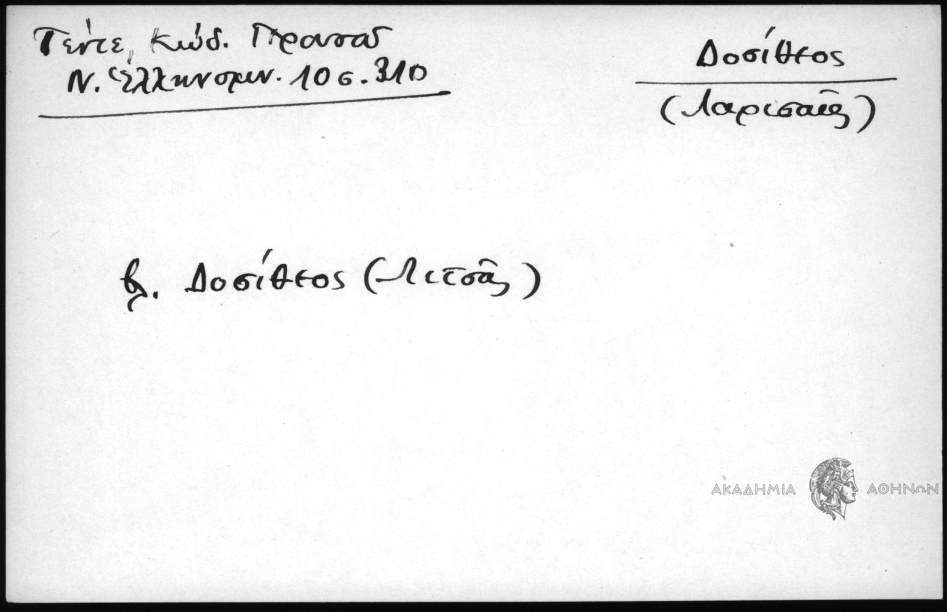 Γέντε, Κώδ.
Ν. Ἑλληνομν. 10 σ. 310
Δοσίθεος
(Λαρισαῖος)
βλ. Δοσίθεος (Λιτσᾶς)
ΑΚΑΔΗΜΙΑ ΑΘΗΝΩΝ